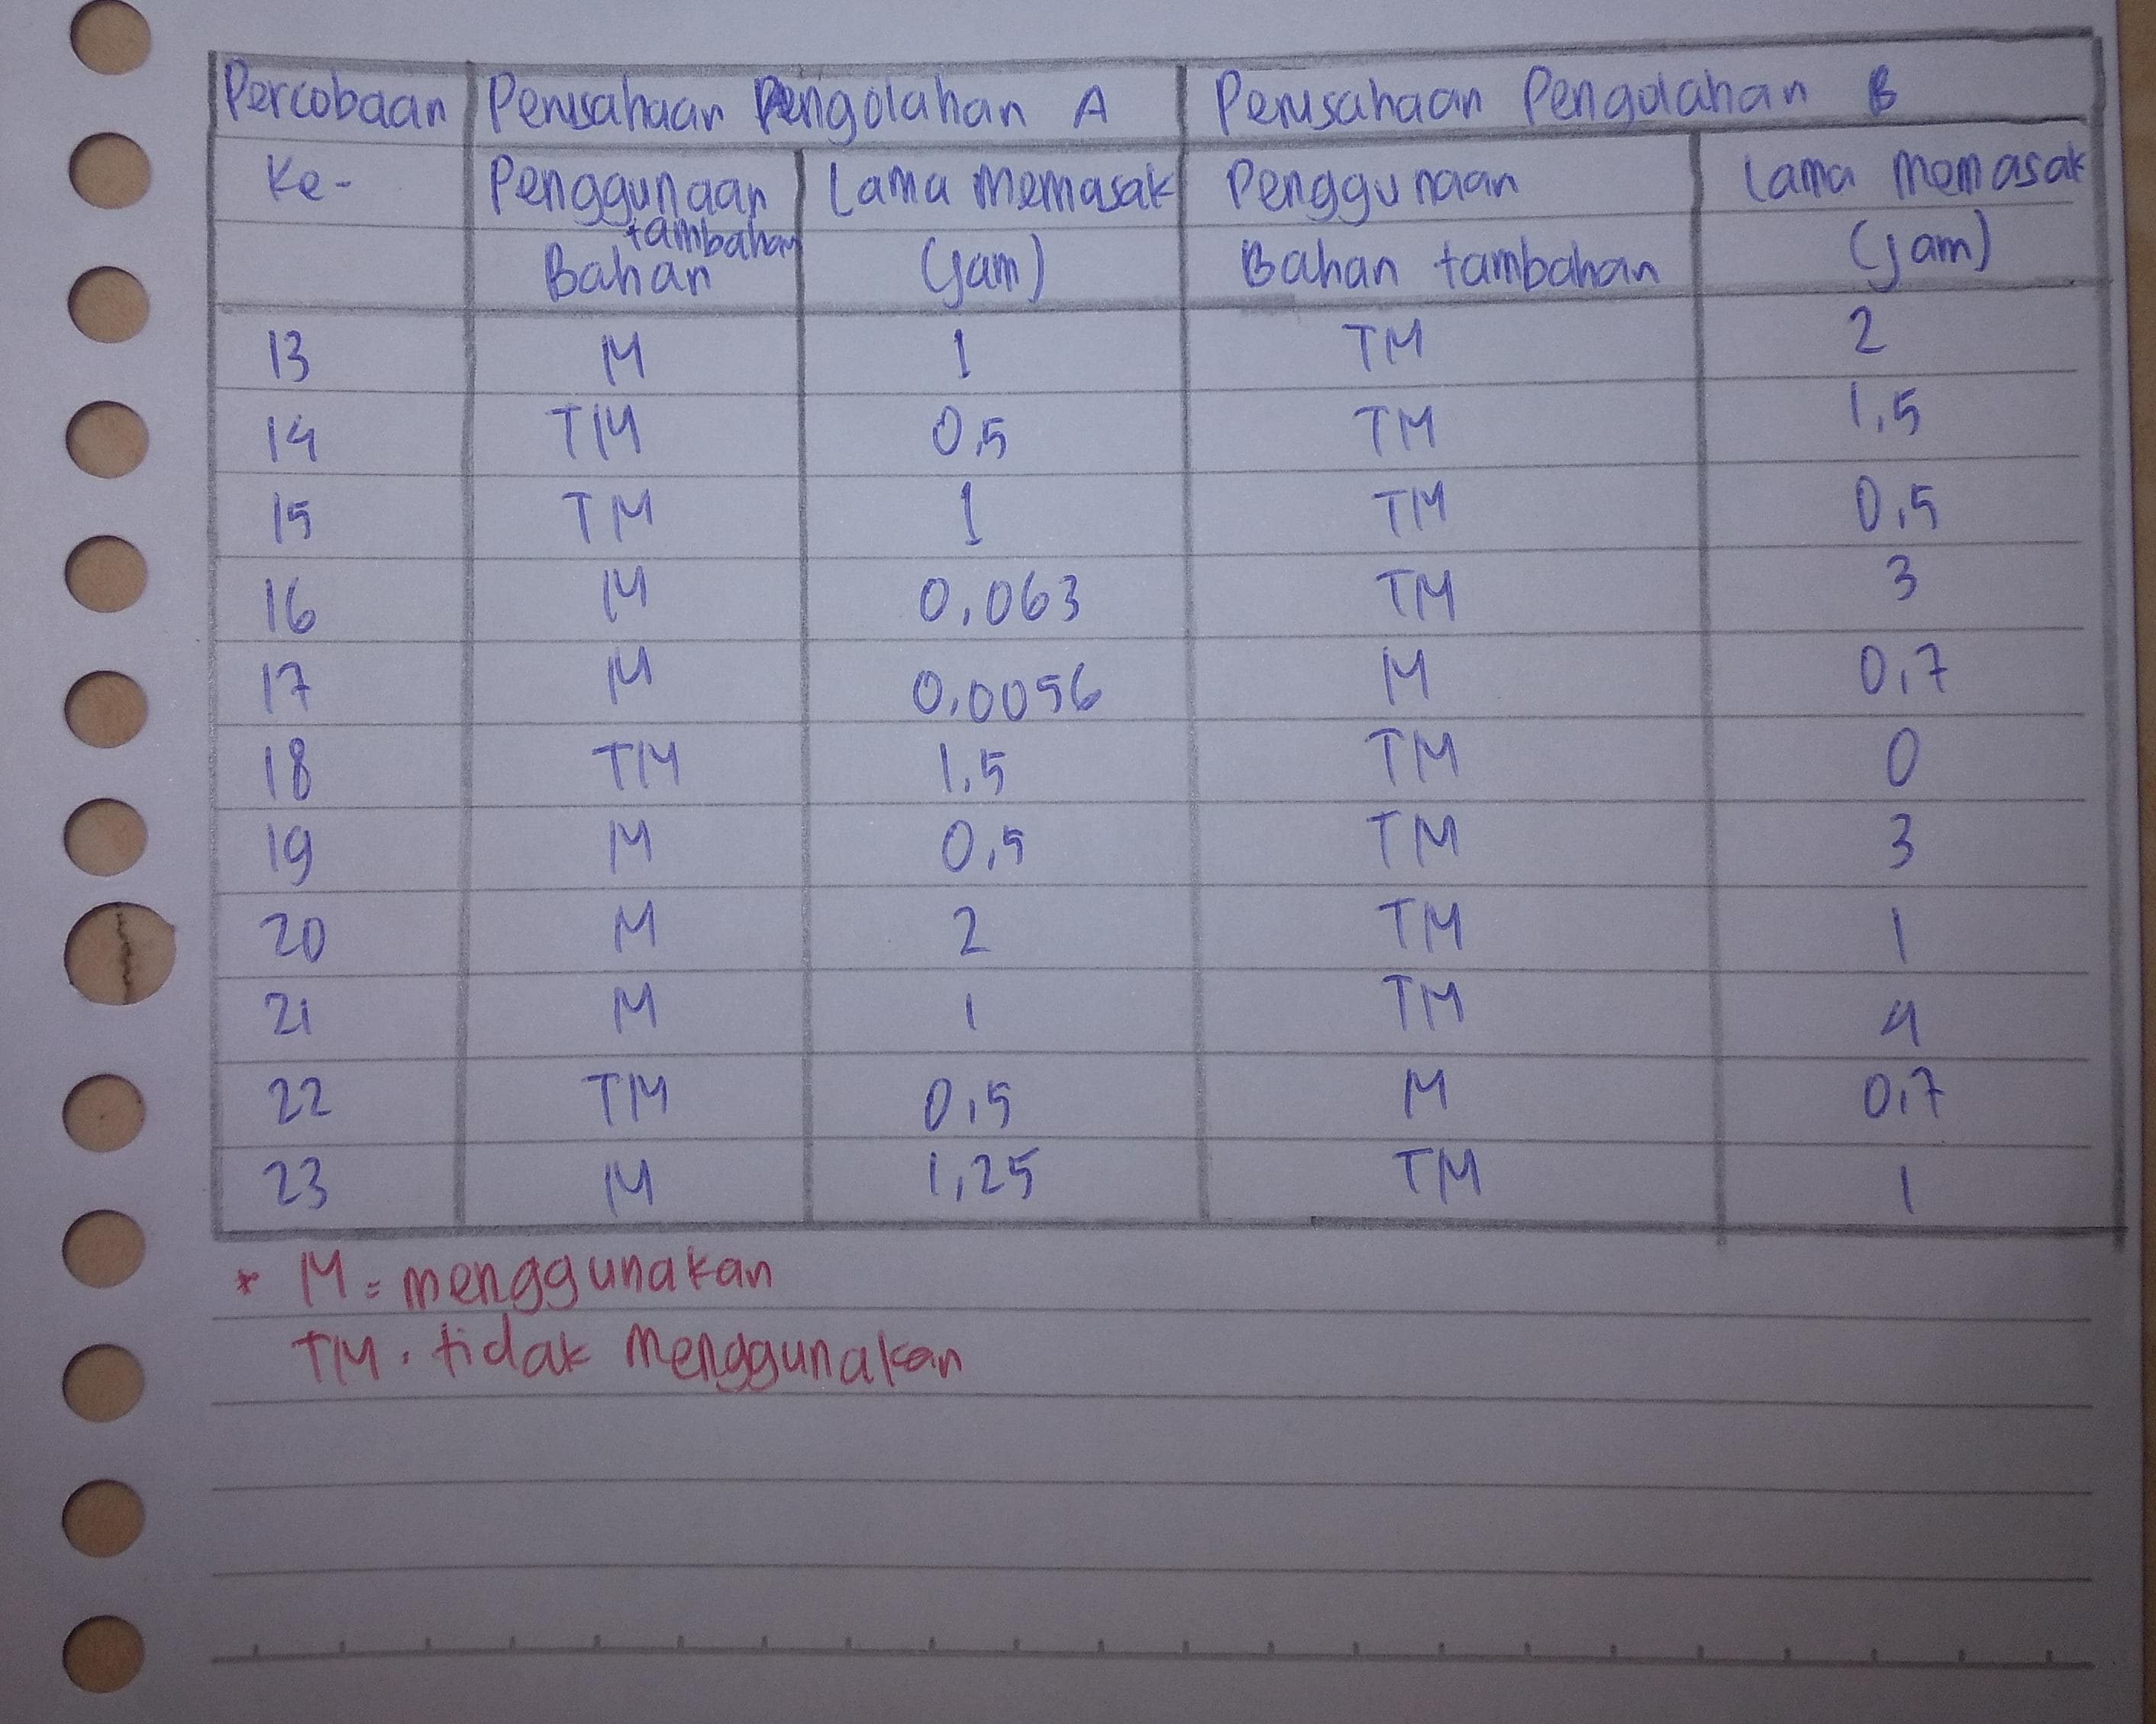 Percobaan Perusahaan Pengolahan A Perusahaan Pengolahan B
Ke- Penggunaan Lama Memasak Penggunaan Lama Memasak
tambahan
Bahan (jam) Bahan tambahan (jam)
13 M 1 TM 2
14 TM 0,5 TM 1,5
15 TM 1 TM 0,5
16 M 0,063 TM 3
17 M 0,0056 M 0,7
18 TM 1,5 TM 0
19 M 0,5 TM 3
20 M 2 TM 1
21 M 1 TM 4
22 TM 0,5 M 0,7
23 M 1,25 TM 1
* M = menggunakan
TM . tidak Menggunakan